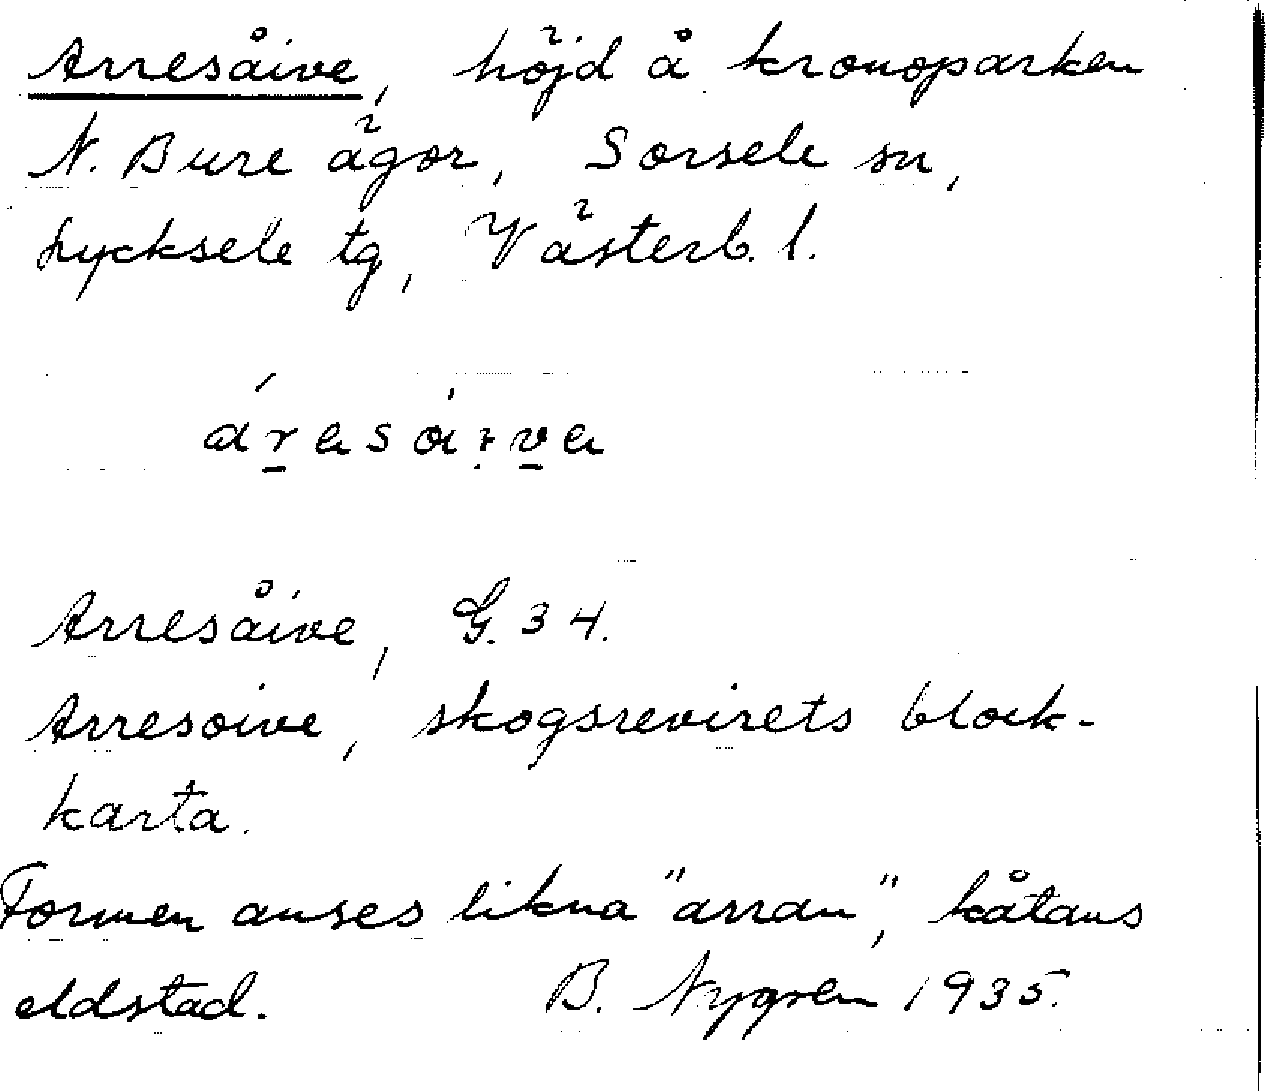 Arresåive, höjd å kronoparken
N. Bure ägor, Sorsele sn,
Lycksele tg, Västerb. l.
Arresåive, G. 34.
Arresoive, skogsrevirets block-
karta.
Formen anses likna "arran", kåtans
eldstad. B. Nygren 1935.